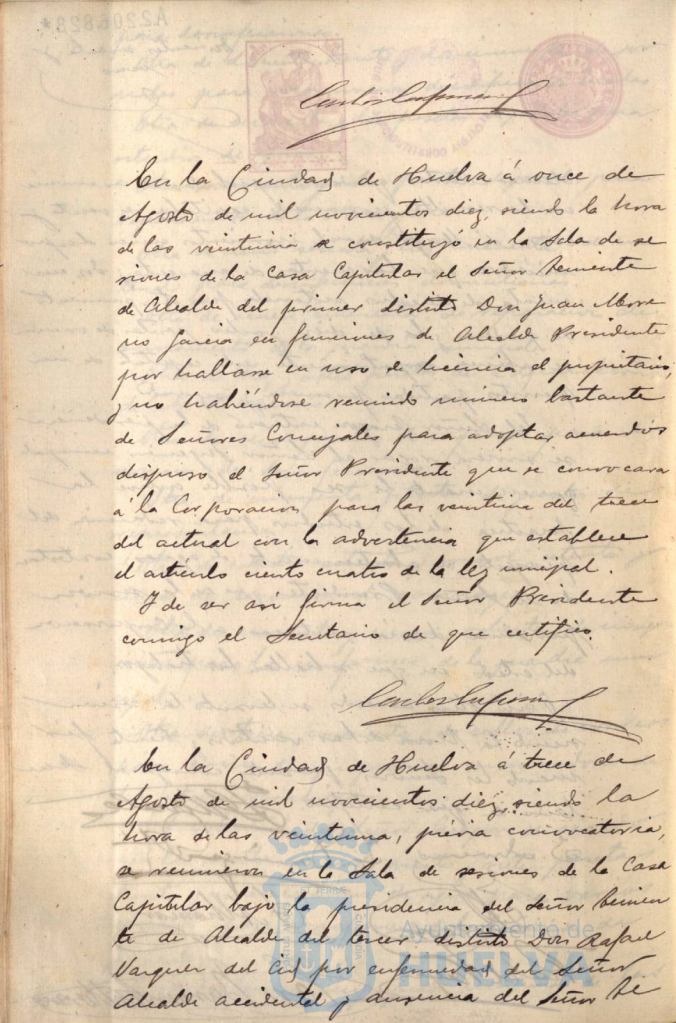 A2206828*
En la Ciudad de Huelva á once de
Agosto de mil novecientos diez, siendo la hora
de las veintiuna se constituyó en la Sala de se
siones de la Casa Capitular el Señor Teniente
de Alcalde del primer distrito Don Juan More
no Garcia en funciones de Alcalde Presidente
por hallarse en uso de licencia el propietario,
y no habiéndose reunido número bastante
de Señores Concejales para adoptar acuerdos
dispuso el Señor Presidente que se convocara
á la Corporacion para las veintiuna del trece
del actual con la advertencia que establece
el artículo ciento cuatro de la ley municipal.
Y de ser asi firma el Señor Presidente
conmigo el Secretario de que certifico.
En la Ciudad de Huelva á trece de
Agosto de mil novecientos diez, siendo la
hora de las veintiuna, prévia convocatoria,
se reunieron en la Sala de sesiones de la Casa
Capitular bajo la presidencia del Señor Tenien
te de Alcalde del tercer distrito Don Rafael
Vazquez del Cid por enfermedad del Señor
Alcalde accidental y ausencia del Señor Te
Ayuntamiento de
HUELVA